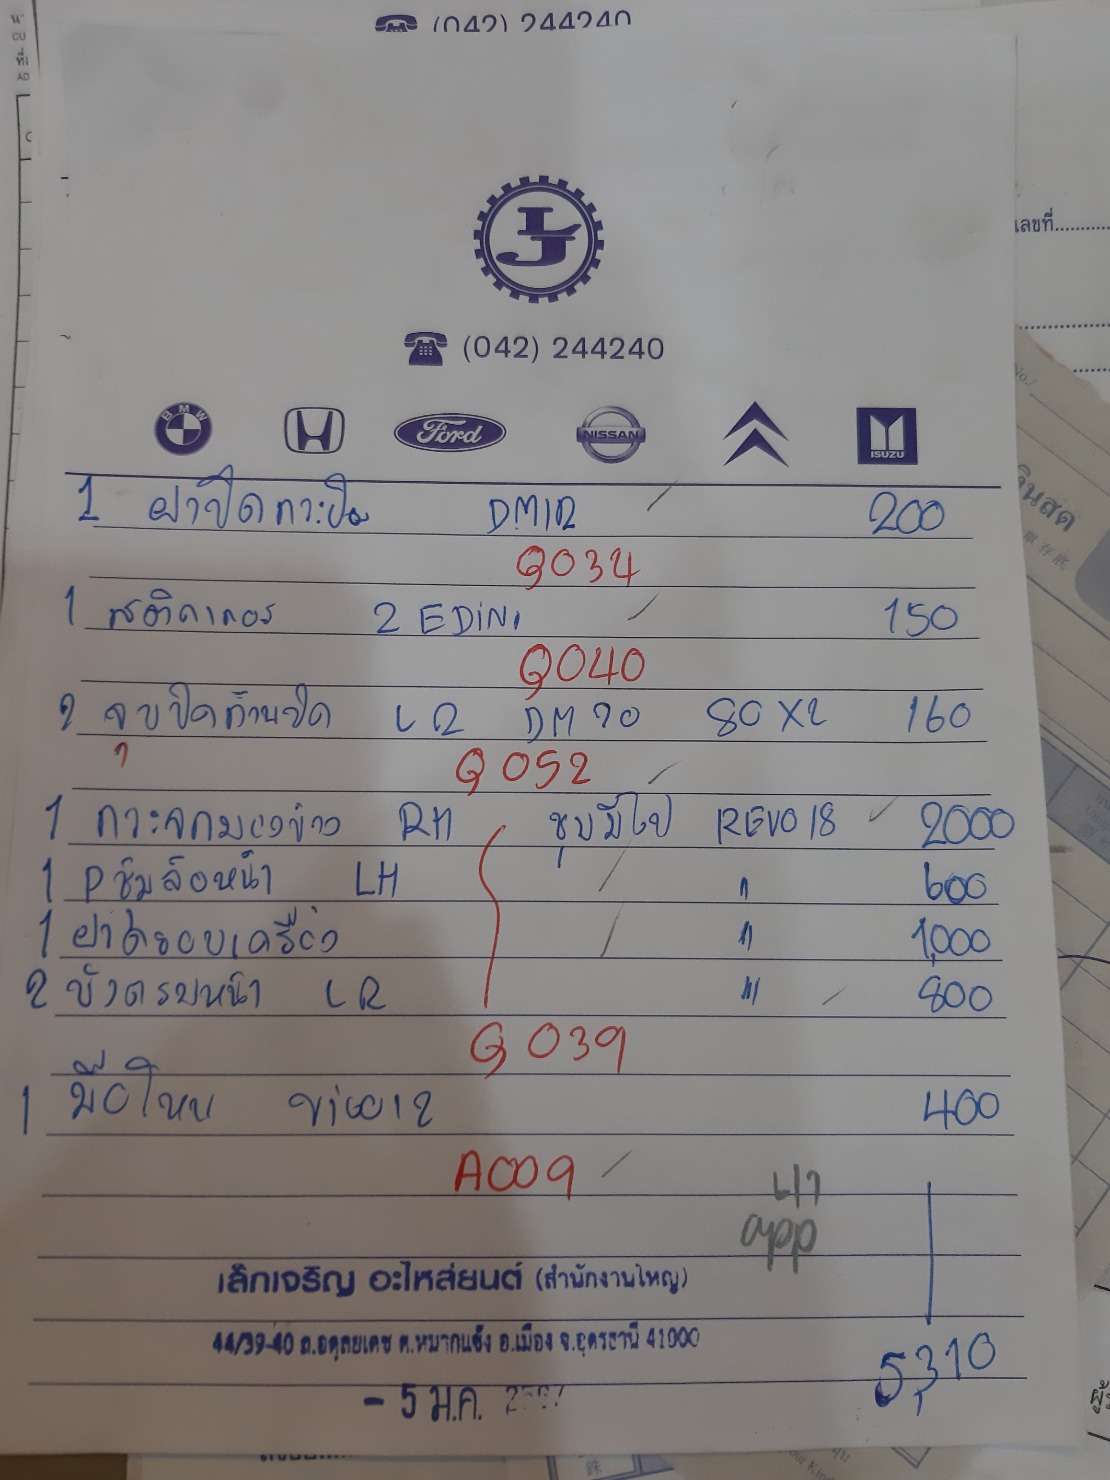 (042) 244240
เลขที่
LJ
(042) 244240
BMW Ford NISSAN ISUZU
No./
เงินสด
1 ฝาปิดกะบะ DMAX 200
Q034
1 สติกเกอร์ 2 EDINI 150
Q040
2 จุบปิดก้านปัด LR DM 20 80X2 160
Q052
1 กระจกมองข้าง RH ชุบมีไฟ REVO 18 2000
1 Pซุ้มล้อหน้า LH " 600
1 ฝาครอบเครื่อง " 1,000
2 บังตรมหน้า LR " 800
Q039
1 มือโหน 400
A009
app
เล็กเจริญ อะไหล่ยนต์ (สำนักงานใหญ่)
44/39-40 ถ.อดุลยเดช ต.หมากแข้ง อ.เมือง จ.อุดรธานี 41000
5,310
- 5 ม.ค. 2567